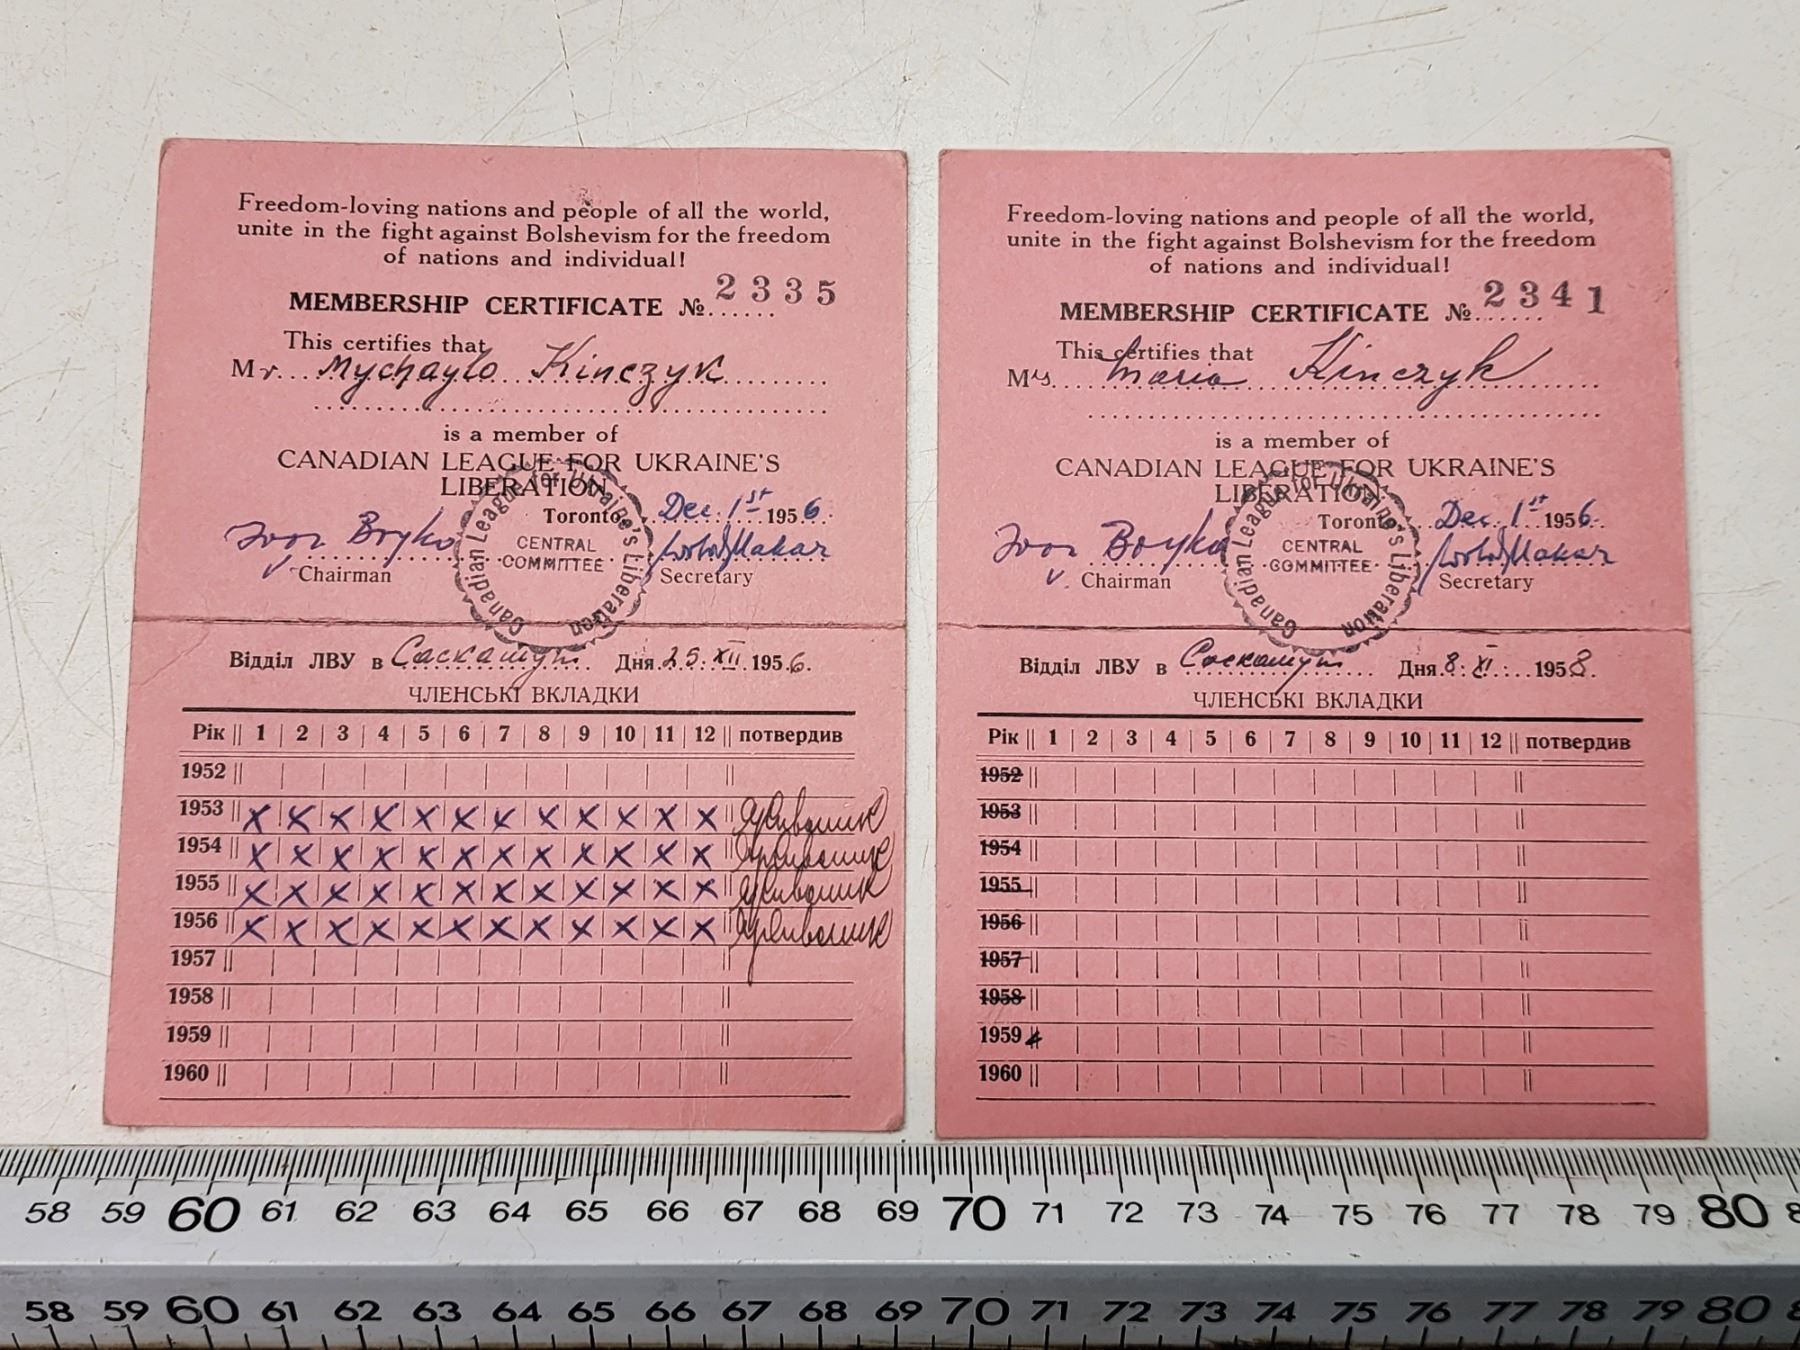 Freedom-loving nations and people of all the world,
unite in the fight against Bolshevism for the freedom
of nations and individual!
MEMBERSHIP CERTIFICATE № 2335
This certifies that
Mr. Mychaylo Kinczyk
is a member of
CANADIAN LEAGUE FOR UKRAINE'S
LIBERATION
Toronto, Dec. 1st 1956.
Ivor Boyko
Chairman Secretary
Canadian League for Ukraine's Liberation
CENTRAL
COMMITTEE
Відділ ЛВУ в Саскатун Дня 25. XII 1956.
ЧЛЕНСЬКІ ВКЛАДКИ
Рік 1 2 3 4 5 6 7 8 9 10 11 12 потвердив
1952
1953 x x x x x x x x x x x x
1954 x x x x x x x x x x x x
1955 x x x x x x x x x x x x
1956 x x x x x x x x x x x x
1957
1958
1959
1960
Freedom-loving nations and people of all the world,
unite in the fight against Bolshevism for the freedom
of nations and individual!
MEMBERSHIP CERTIFICATE № 2341
This certifies that
Mrs. Maria Kinczyk
is a member of
CANADIAN LEAGUE FOR UKRAINE'S
LIBERATION
Toronto, Dec. 1st 1956.
Ivor Boyko
Chairman Secretary
Canadian League for Ukraine's Liberation
CENTRAL
COMMITTEE
Відділ ЛВУ в Саскатун Дня 8. XI. 1958.
ЧЛЕНСЬКІ ВКЛАДКИ
Рік 1 2 3 4 5 6 7 8 9 10 11 12 потвердив
1952
1953
1954
1955
1956
1957
1958
1959
1960
58 59 60 61 62 63 64 65 66 67 68 69 70 71 72 73 74 75 76 77 78 79 80
58 59 60 61 62 63 64 65 66 67 68 69 70 71 72 73 74 75 76 77 78 79 80